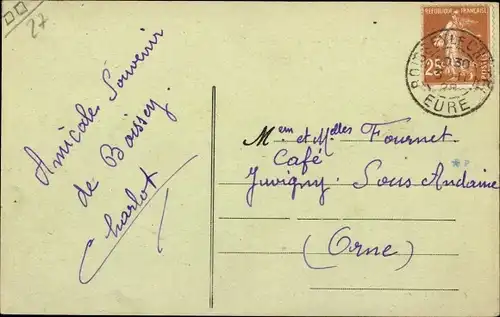 27
Amicale Souvenir
de Boissey
Charlot
REPUBLIQUE FRANCAISE
25
EURE
Mem et Melles Fournet
Café
Juvigny Sous Andaine
(Orne)